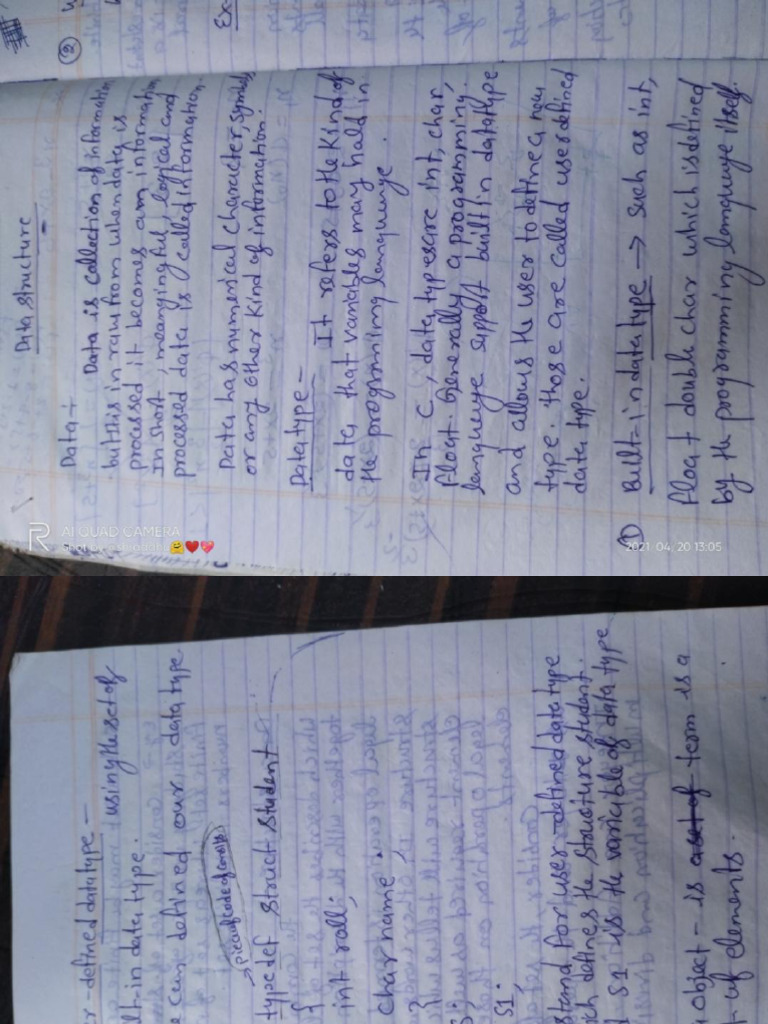 Data structure
Data →
Data is collection of information
but this in raw from when data is
processed it becomes an information
in short, meaningful, logical and
processed data is called information.
Data has numerical character, symbols
or any other kind of information.
Data type -
It refers to the kind of
data that variables may hold in
the programming language.
In C, data types are int, char,
float. Generally a programming
language support built in datatype
and allows the user to define a new
type. those are called user defined
data type.
① Built-in data type → such as int,
float double char which is defined
by the programming language itself.
②
Ex
AI QUAD CAMERA
Shot by
2021.04.20 13:05
r-defined data type -
using the set of
lt-in data type.
e can defined our data type
→ piece of code of
type def struct student
{
int roll;
char name
}
S1;
stand for user-defined data type
ich defines the structure student.
S1 is the variable of data type
object - is a set of term is a
of elements.